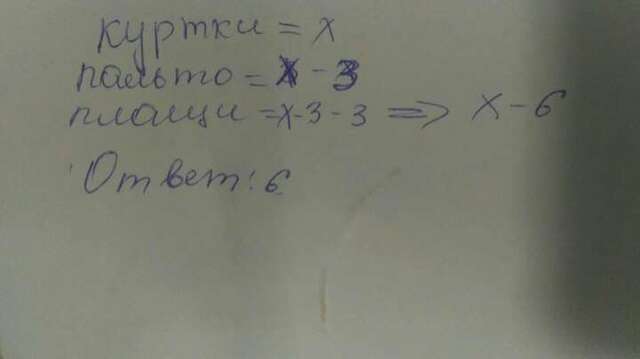 куртки = x
пальто = x - 3
плащи = x - 3 - 3 => x - 6
Ответ: 6